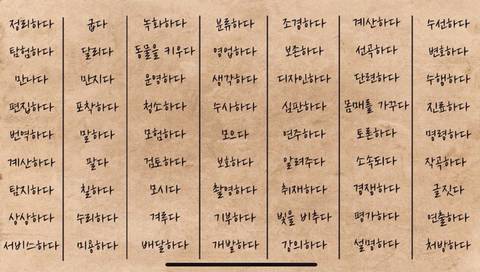 정리하다 굽다 녹화하다 분류하다 조경하다 계산하다 수선하다
탐험하다 달리다 동물을 키우다 영업하다 보존하다 선곡하다 변호하다
만나다 만지다 운영하다 생각하다 디자인하다 단련하다 수행하다
편집하다 포착하다 청소하다 수사하다 심판하다 몸매를 가꾸다 진료하다
번역하다 말하다 모험하다 모으다 연주하다 토론하다 명령하다
계산하다 팔다 검토하다 보호하다 알려주다 소속되다 작곡하다
탐지하다 칠하다 모시다 촬영하다 취재하다 경쟁하다 글짓다
상상하다 수리하다 겨루다 기부하다 빛을 비추다 평가하다 연출하다
서비스하다 미용하다 배달하다 개발하다 강의하다 설명하다 처방하다